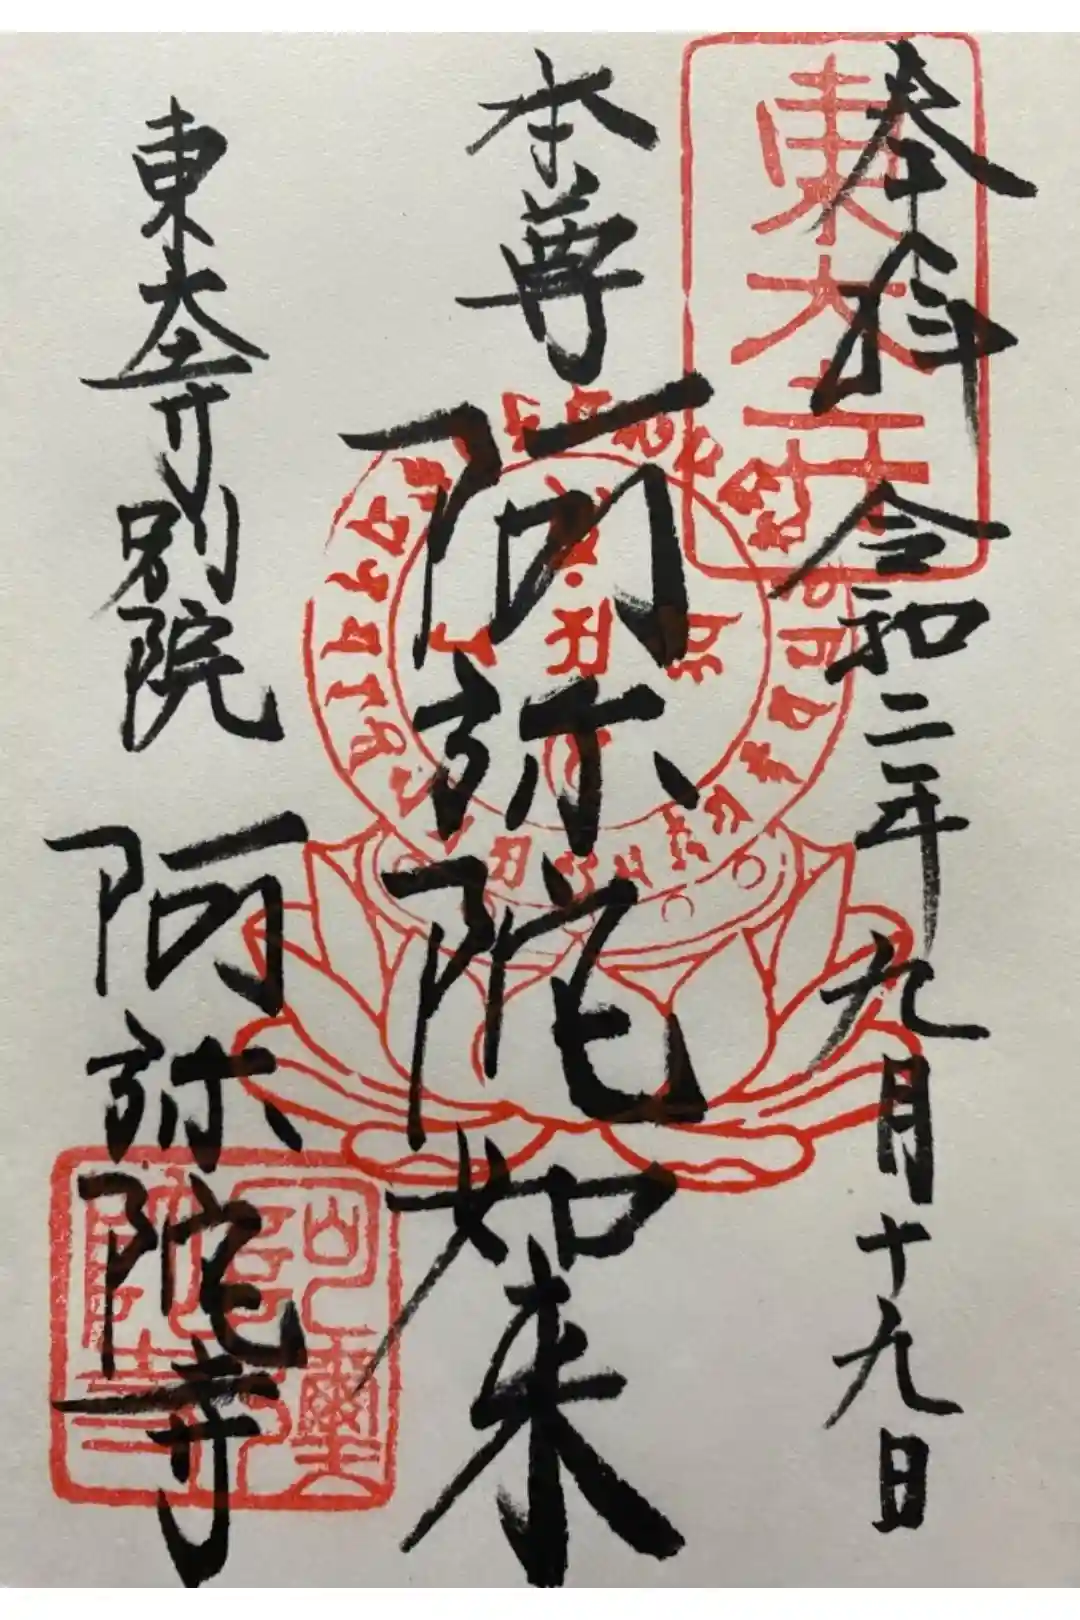 奉拝 令和二年九月十九日
東大寺
本尊 阿弥陀如来
東大寺別院 阿弥陀寺
阿彌陀寺